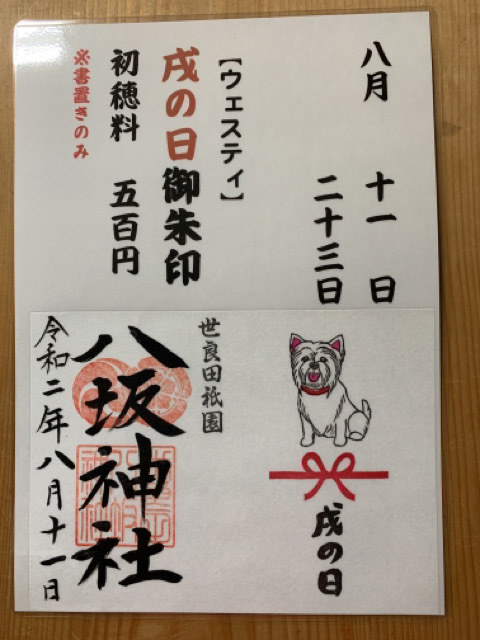 八月 十一日
二十三日
【ウェスティ】
戌の日御朱印
初穂料 五百円
※書置きのみ
戌の日
世良田祇園
八坂神社
令和二年八月十一日